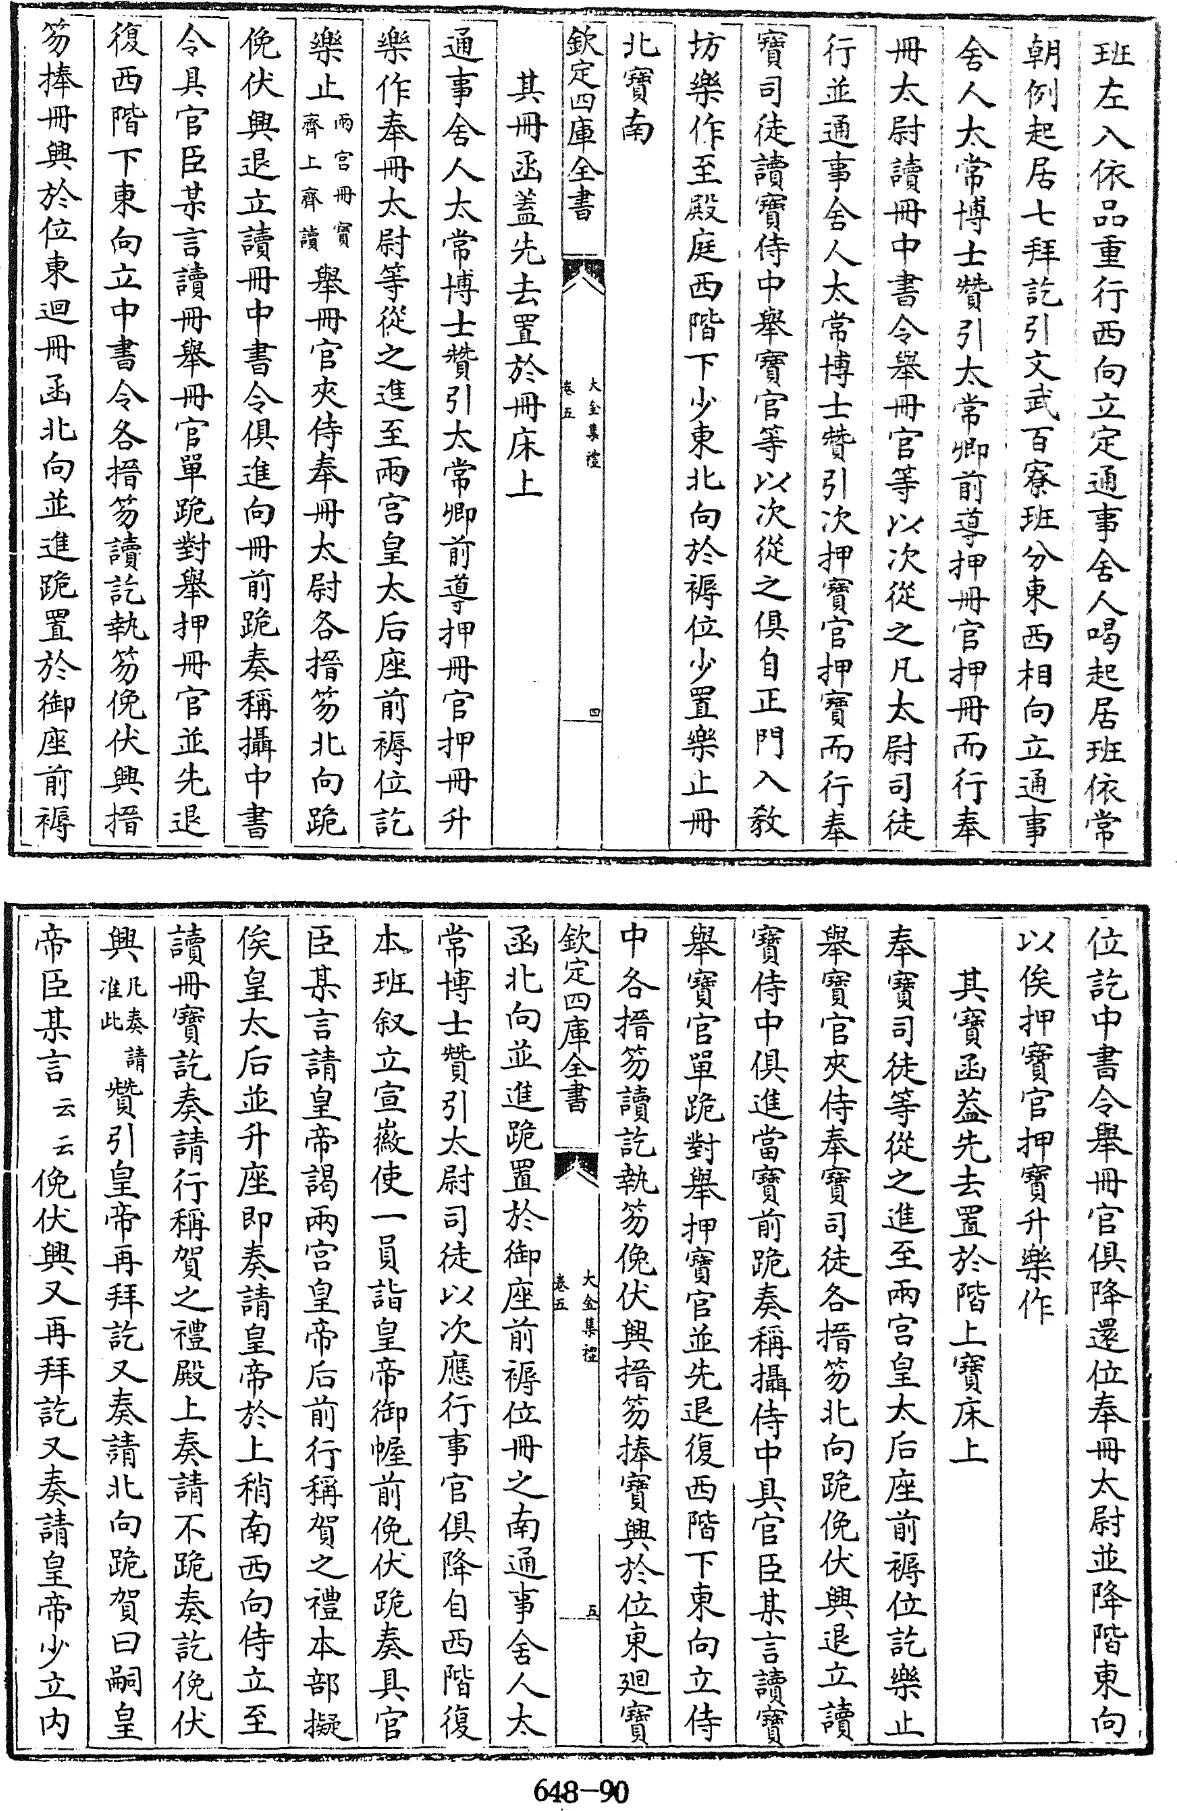 班左入依品重行西向立定通事舍人喝起居班依常
朝例起居七拜訖引文武百寮班分東西相向立通事
舍人太常博士贊引太常卿前導押冊官押冊而行奉
冊太尉讀冊中書令舉冊官等以次從之凡太尉司徒
行並通事舍人太常博士贊引次押寶官押寶而行奉
寶司徒讀寶侍中舉寶官等以次從之俱自正門入教
坊樂作至殿庭西階下少東北向於褥位少置樂止冊
北寶南
欽定四庫全書
大金集禮
卷五
四
其冊函蓋先去置於冊床上
通事舍人太常博士贊引太常卿前導押冊官押冊升
樂作奉冊太尉等從之進至兩宮皇太后座前褥位訖
樂止兩宮冊寶齊上齊讀舉冊官夾侍奉冊太尉各搢笏北向跪
俛伏興退立讀冊中書令俱進向冊前跪奏稱攝中書
令具官臣某言讀冊舉冊官單跪對舉押冊官並先退
復西階下東向立中書令各搢笏讀訖執笏俛伏興搢
笏捧冊興於位東迴冊函北向並進跪置於御座前褥
位訖中書令舉冊官俱降還位奉冊太尉並降階東向
以俟押寶官押寶升樂作
其寶函蓋先去置於階上寶床上
奉寶司徒等從之進至兩宮皇太后座前褥位訖樂止
舉寶官夾侍奉寶司徒各搢笏北向跪俛伏興退立讀
寶侍中俱進當寶前跪奏稱攝侍中具官臣某言讀寶
舉寶官單跪對舉押寶官並先退復西階下東向立侍
中各搢笏讀訖執笏俛伏興搢笏捧寶興於位東迴寶
欽定四庫全書
大金集禮
卷五
五
函北向並進跪置於御座前褥位冊之南通事舍人太
常博士贊引太尉司徒以次應行事官俱降自西階復
本班叙立宣徽使一員詣皇帝御幄前俛伏跪奏具官
臣某言請皇帝謁兩宮皇帝后前行稱賀之禮本部擬
俟皇太后並升座即奏請皇帝於上稍南西向侍立至
讀冊寶訖奏請行稱賀之禮殿上奏請不跪奏訖俛伏
興凡奏請准此贊引皇帝再拜訖又奏請北向跪賀曰嗣皇
帝臣某言云云俛伏興又再拜訖又奏請皇帝少立内
648-90